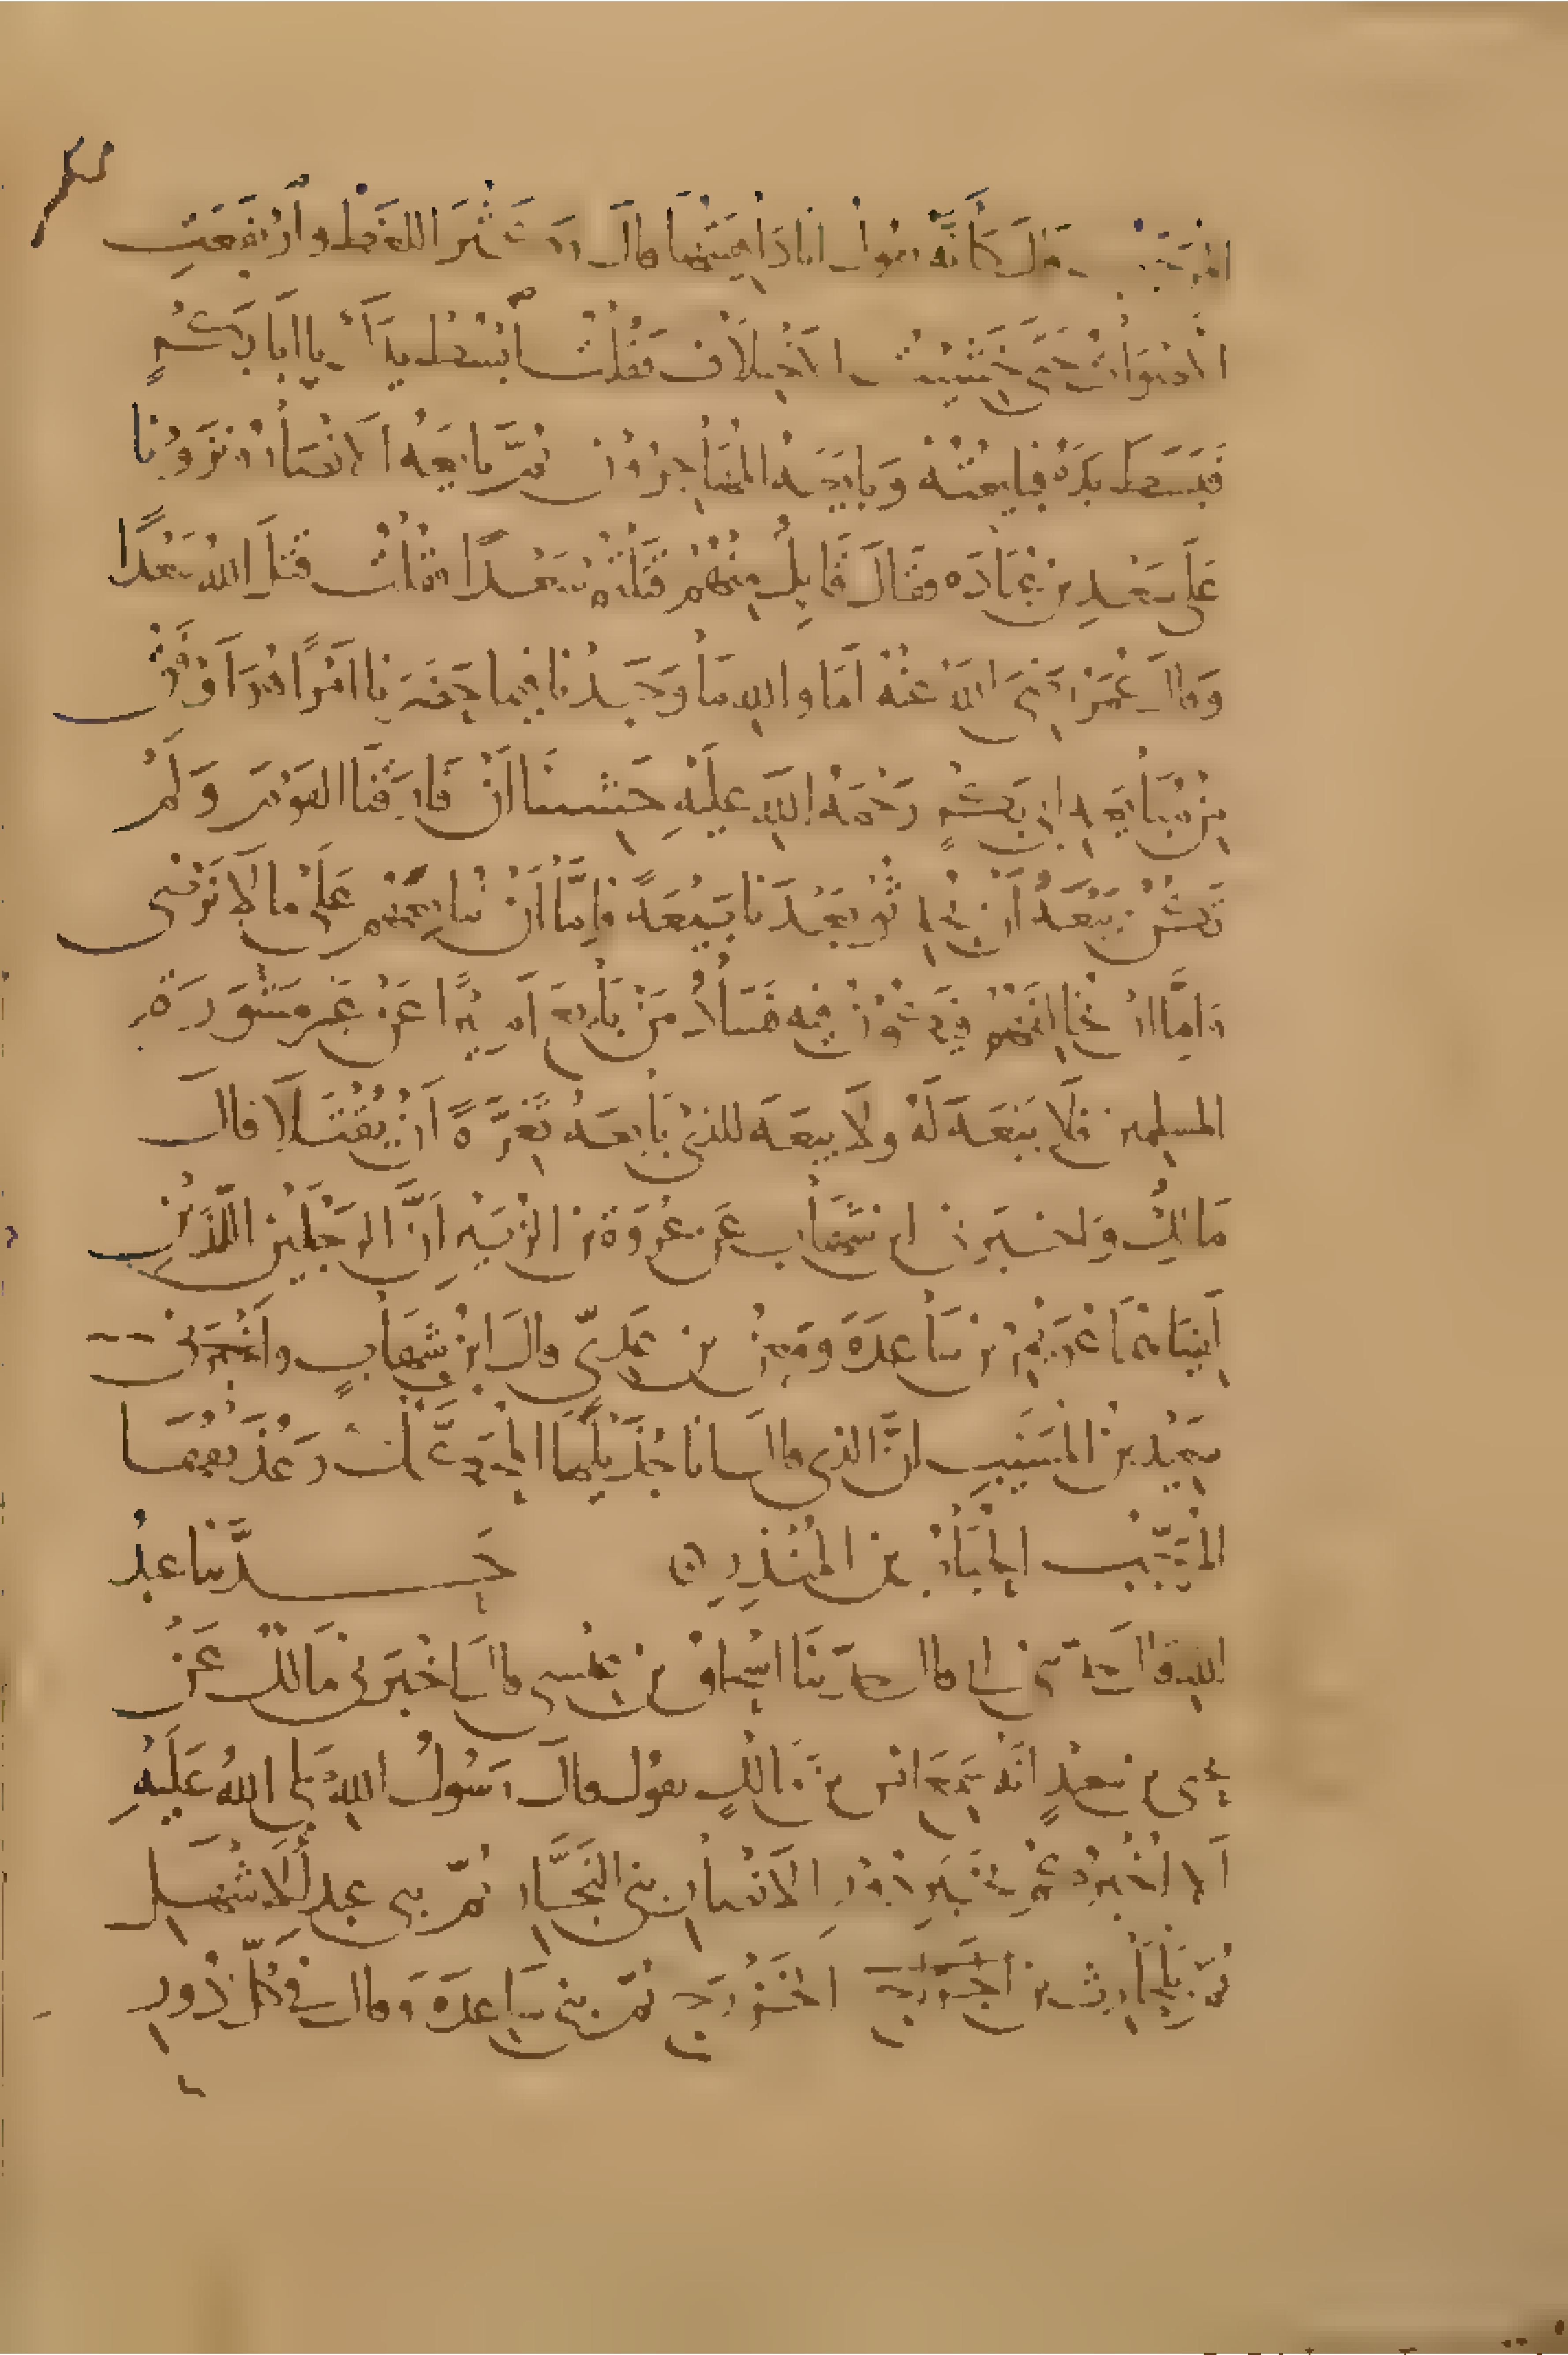 المرجب قال كأنه يقول انا داهيتها قال وكثر اللغط وارتفعت
الأصوات حتى خشيت الاختلاف فقلت ابسط يدك يا ابا بكر
فبسط يده فبايعته وبايعه المهاجرون ثم بايعه الانصار ونزونا
على سعد بن عباده فقال قايل منهم قتلتم سعدا فقلت قتل الله سعدا
وقال عمر رضى الله عنه اما والله ما وجدنا فيما حضرنا امرا هو اوفق
من مبايعه ابى بكر رحمة الله عليه خشينا ان فارقنا القوم ولم
تكن بيعه ان يحدثوا بعدنا بيعة فاما ان نبايعهم على ما لا نرضى
واما ان نخالفهم فيكون فيه فساد من بايع اميرا عن غير مشورة
المسلمين فلا بيعه له ولا بيعه للذى بايعه تغرة ان يقتلا قال
مالك واخبرنى ابن شهاب عن عروة بن الزبير ان الرجلين اللذين
لقياهما عويم بن ساعدة ومعن بن عدى قال ابن شهاب واخبرنى
سعيد بن المسيب ان الذى قال انا جذيلها المحكك وعذيقها
المرجب الحباب بن المنذر
حدثنا عبد
الله قال حدثنى ابى قال حدثنا اسحاق بن عيسى قال اخبرنى مالك عن
يحيى بن سعيد انه سمع انس بن مالك يقول قال رسول الله صلى الله عليه
الا اخبركم بخير دور الانصار بنى النجار ثم بنى عبد الاشهل
ثم بلحارث بن الخزرج ثم بنى ساعده وقال فى كل دور